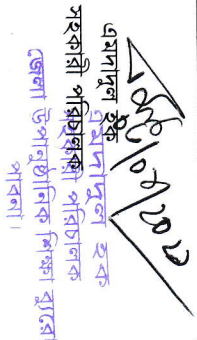 এমদাদুল হক
সহকারী পরিচালক
এমদাদুল হক
সহকারী পরিচালক
জেলা উপানুষ্ঠানিক শিক্ষা ব্যুরো
পাবনা।